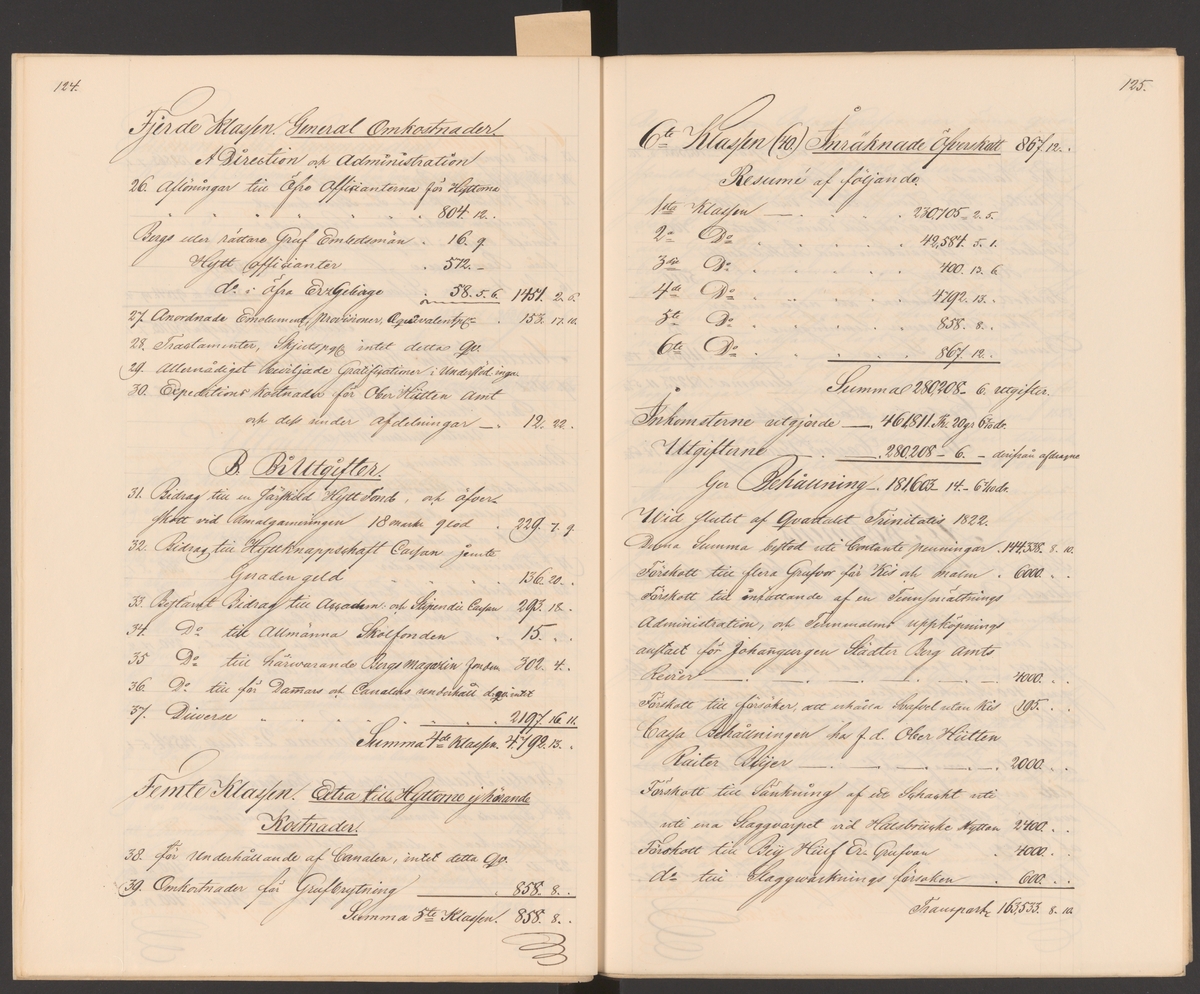 124.
Fjerde Klassen. General Omkostnader.
A Direction och Administration
26. Aflöningar till Öfre Officianterna för Hyttorna
" " " " " " " 804. 12. .
Bergs eller rättare Gruf Embedsmän . 16. 9.
Hytt Officianter . 572. –
do i Öfra ErzGebirge . 58. 5. 6. 1451. 2. 6.
27. Anordnade Emolument, provisioner, Equivalent . 153. 17. 10.
28. Tractamenter, Skjuts intet detta Qv.
29. Allernådigst beviljade Gratificationer i Understöd. inga
30. Expeditions Kostnader för Ober Hütten Amt
och dess under afdelningar — . 12. 22. .
B. BiUtgifter.
31. Bidrag till en särskild Hytt Fond, och öfver-
skott vid Amalgameringen 18 marks glod . 229. 7. 9.
32. Bidrag till Hyttknappschaft Cassan jemte
Gnadengeld . . . . 136. 20. .
33. Bestämt Bidrag till Academ: och Stipendie Cassan 293. 18. .
34. Do till Allmänna Skolfonden . 15. . .
35 Do till härwarande Bergs Magazin fonden 302. 4. .
36. Do till för Dammars och Canalers underhåll d. qv. intet
37. Diverse . . . . . . . 2197. 16. 11.
Summa 4de Klassen. 4792. 13. .
Femte Klassen. Extra till Hyttorne ej hörande
Kostnader.
38. för Underhållande af Canaler, intet detta Qv.
39. Omkostnader för Grufbrytning . 858. 8. .
Summa 5te Klassen. 858. 8. .
125.
6te Klassen (40.) Inräknade Öfverskott 867. 12. .
Resumé af följande.
1sta Klassen — . . . 230,705 – 2. 5.
2a Do . . . . . 42,584. 5. 1.
3die Do . . . . . 400. 13. 6.
4de Do . . . . . 4792. 13. .
5te Do . . . . . 858. 8. .
6te Do . . . . . 867. 12. .
Summa 280,208 – 6. utgifter.
Inkomsterne utgjorde — . 461,811. Th. 20 gr 6
Utgifterne . — . 280,208 – 6. – derifrån afdragne
Ger Behållning — . 181,603 – 14. – 6
Wid slutet af Qvartalet Trinitatis 1822.
Denna Summa bestod uti Contante penningar . 144,338. 8. 10.
Förskott till flera Grufvor för Kis och malm . 6000. . .
Förskott till inrättande af en Tennsmältnings
Administration, och Tennmalms uppköpnings
anstalt för Johangeorgen Städter Berg Amts
Revier — . — . — . — . — . — . 4000. . .
Förskott till försöker, att erhålla Svafvel utan Kis 195. . .
Cassa Behållningen ha f. d. Ober Hütten
Raiter Beijer — . — . — . — . 2000. . .
Förskott till Sänkning af ett Schackt uti
uti ena Slaggvarpet vid Halsbrücke Hyttan 2400. . .
Förskott till Beij Hülf Er. Grufvan . 4000. . .
do till Slaggwasknings försöken . 600. . .
Transport 163,533. 8. 10.